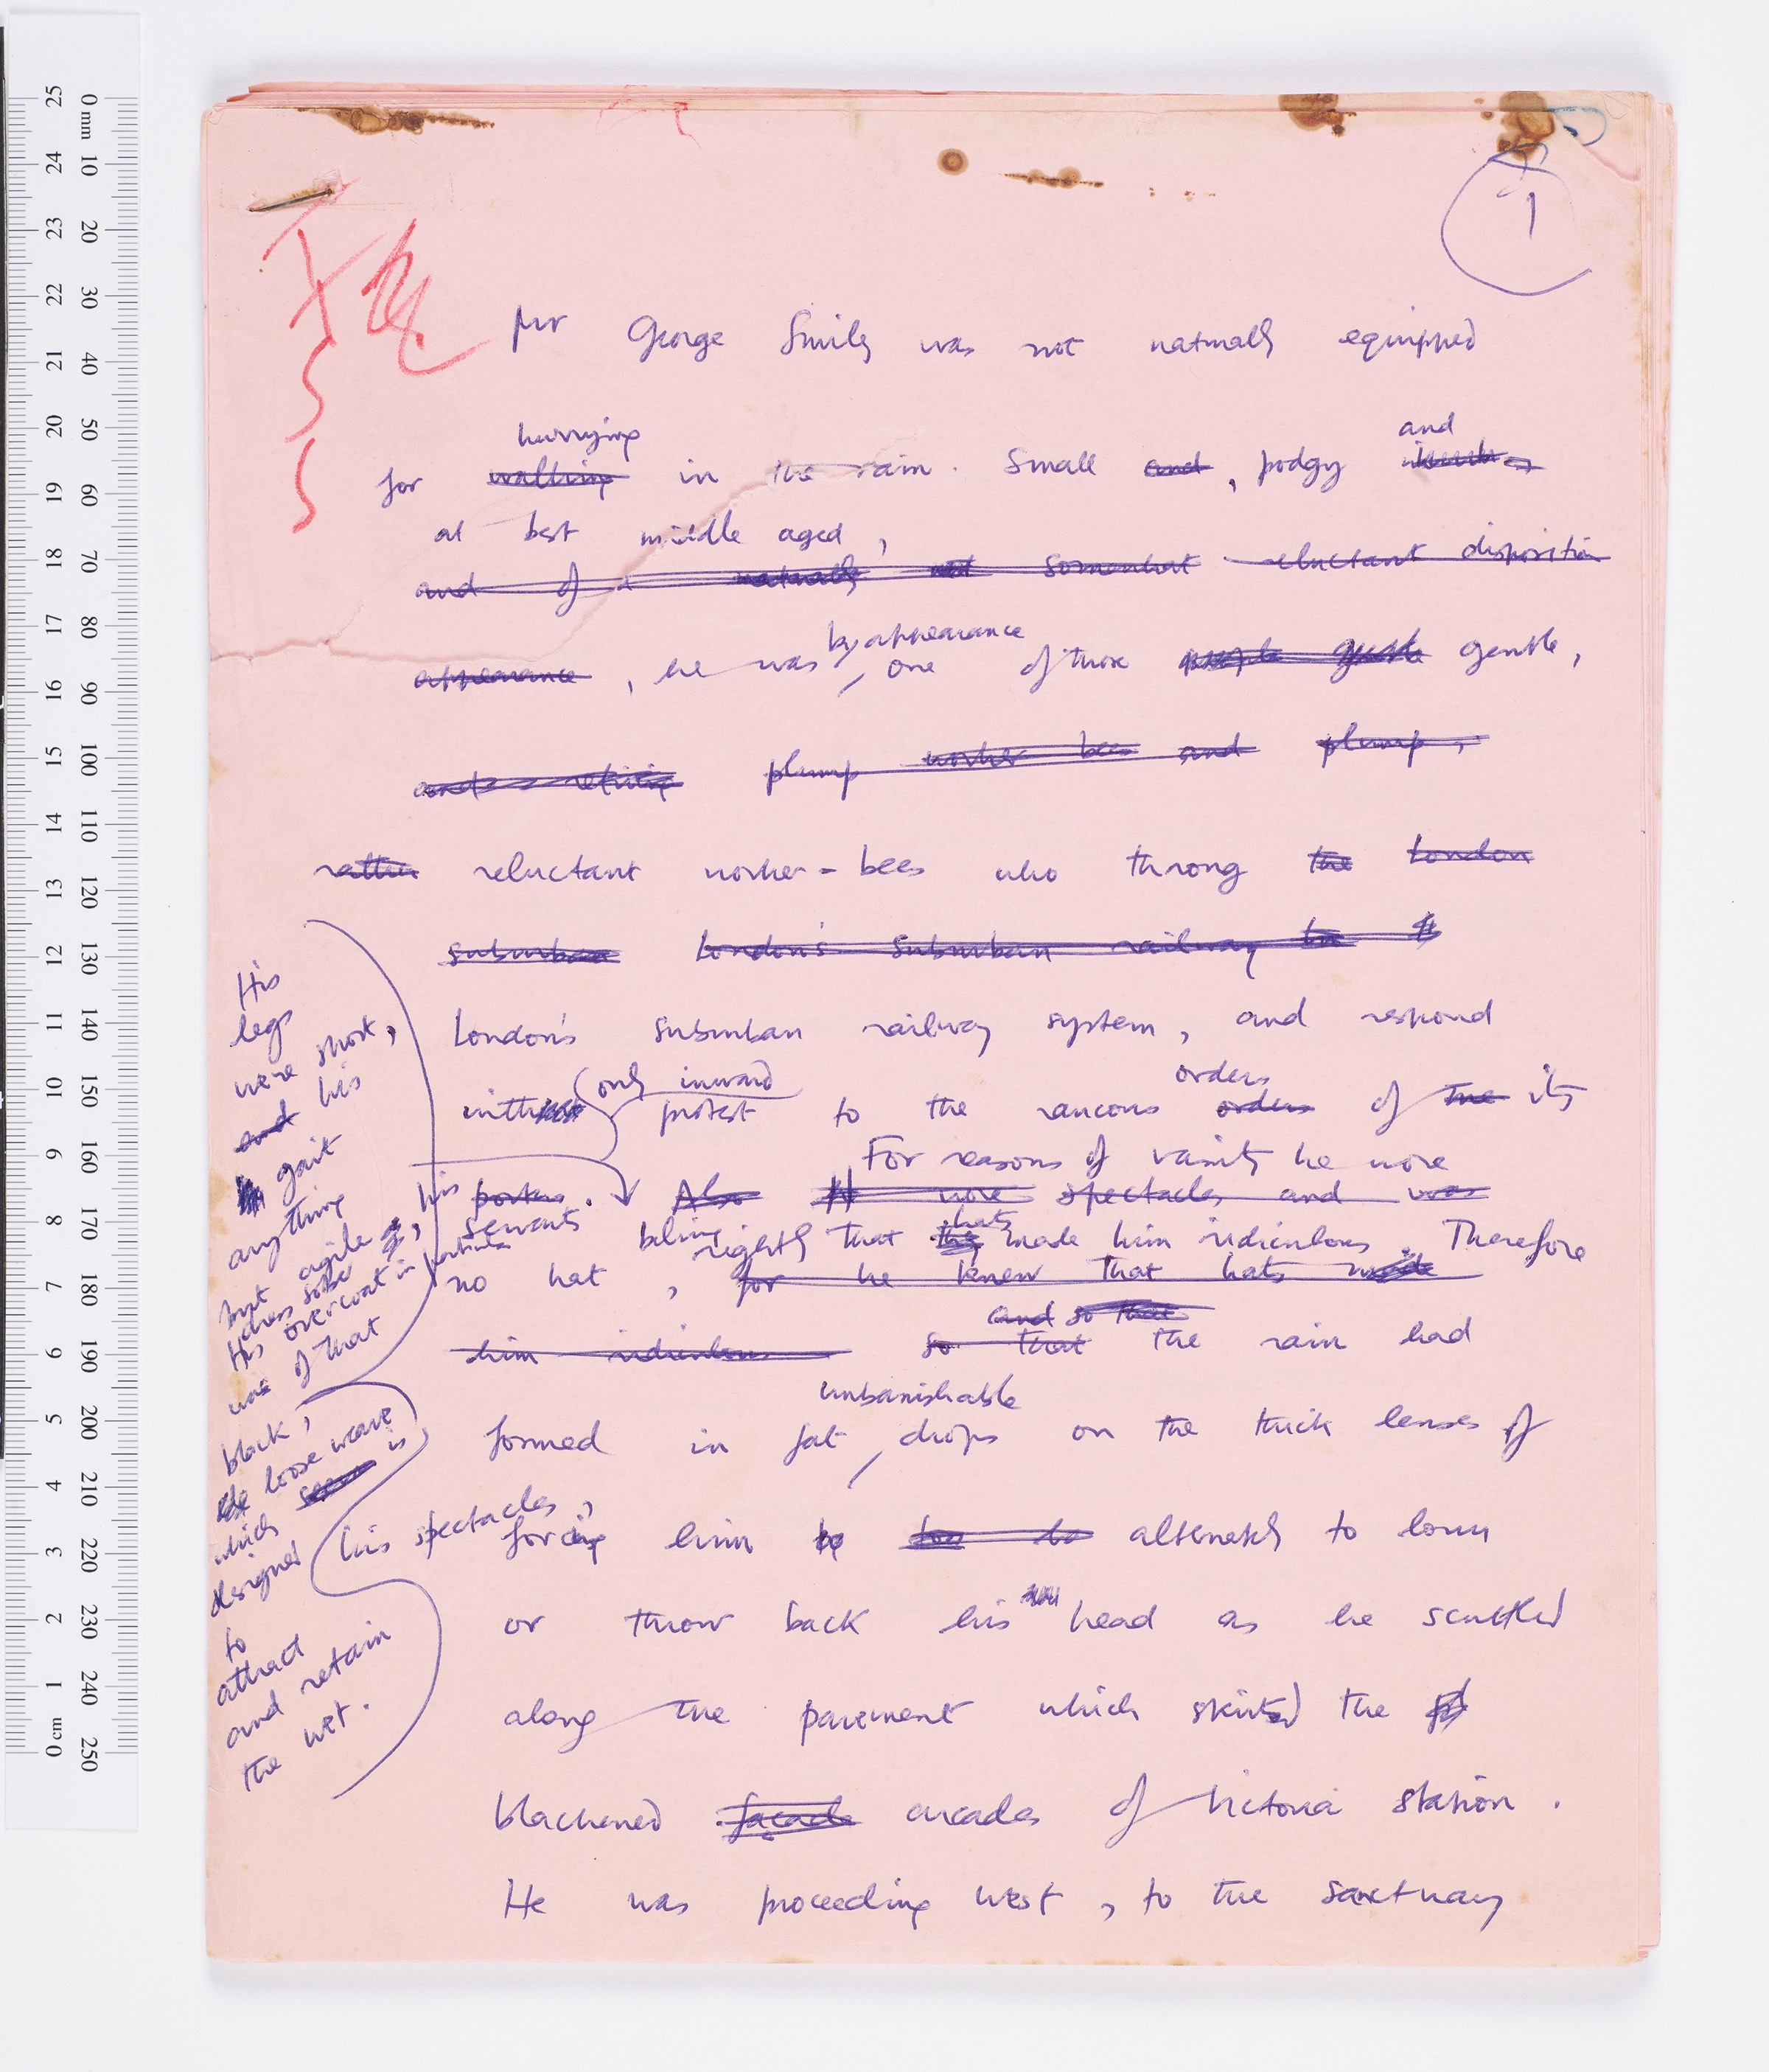 1
Mr George Smiley was not naturally equipped
hurrying and
for walking in the rain. Small and, podgy
at best middle aged,
and of a naturally not somewhat reluctant disposition
by appearance
appearance, he was one of those people gentle gentle,
and retiring plump worker bees and plump,
rather reluctant worker-bees who throng the London
suburban London's suburban railway
London's suburban railway system, and respond
only inward orders
with protest to the raucous orders of the its
For reasons of vanity he wore
porters. Also wore spectacles and was
servants hats
rightly that they made him ridiculous. Therefore
no hat, for he knew that hats made
and so that
him ridiculous so that the rain had
unbanishable
formed in fat drops on the thick lenses of
his spectacles,
forcing him to alternately to lower
or throw back his head as he scuttled
along the pavement which skirted the
blackened facade arcades of Victoria station.
He was proceeding west, to the sanctuary
His
legs
were short,
and his
gait
anything
but agile,
his
dress sober
His overcoat in particular
was of that
black,
loose weave
which is
designed
to
attract
and retain
the wet.
25 24 23 22 21 20 19 18 17 16 15 14 13 12 11 10 9 8 7 6 5 4 3 2 1 0 cm
0 mm 10 20 30 40 50 60 70 80 90 100 110 120 130 140 150 160 170 180 190 200 210 220 230 240 250